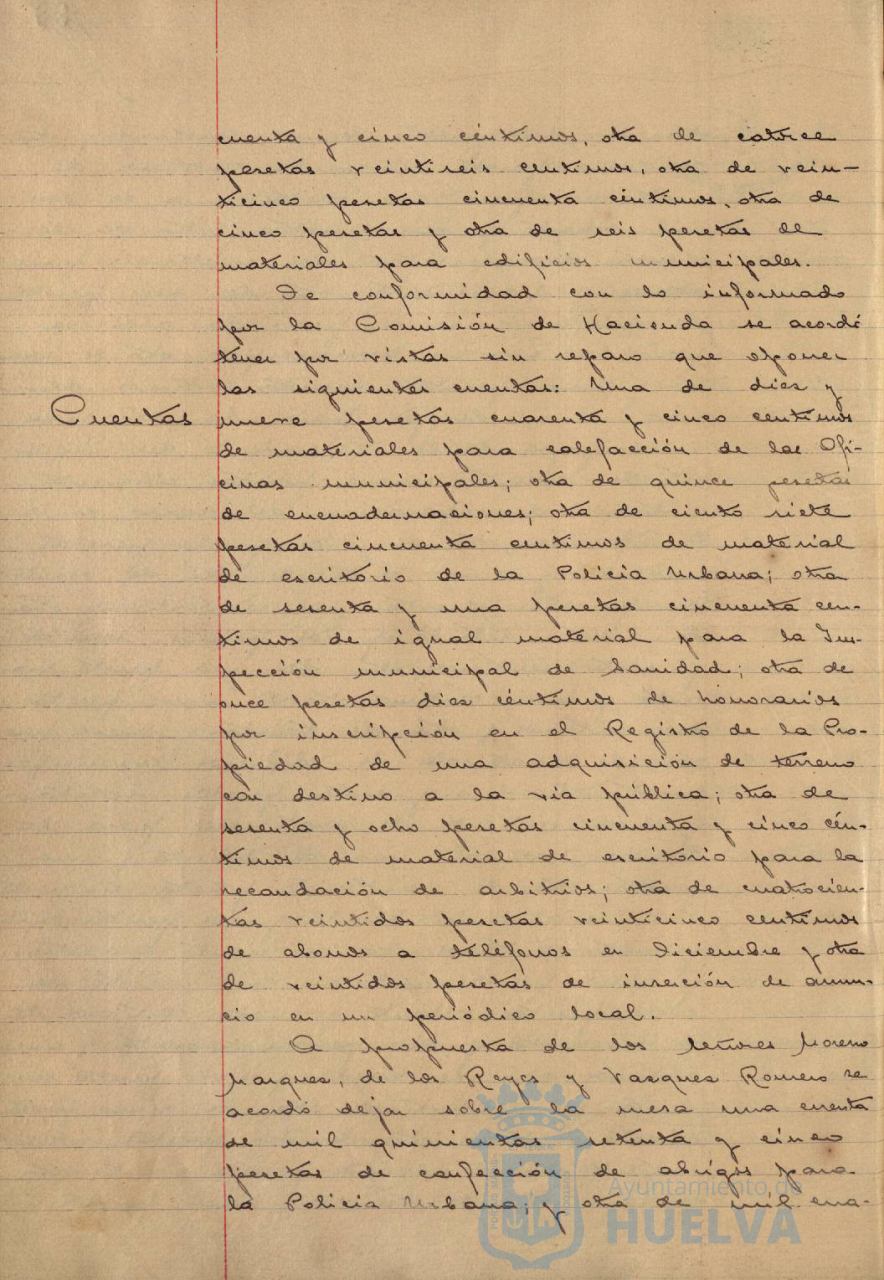 cuenta y cinco céntimos, otra de catorce
pesetas veintiseis centimos, otra de vein-
ticinco pesetas cincuenta céntimos, otra de
cinco pesetas y otra de seis pesetas de
materiales para edificios municipales.
De conformidad con lo informado
por la Comisión de Hacienda se acordó
tener por vistas sin reparo que oponer
las siguientes cuentas: Una de diez y
Cuentas
nueve pesetas cuarenta y cinco centimos
de materiales para calefacción de las Ofi-
cinas municipales; otra de quince pesetas
de encuadernaciones; otra de ciento siete
pesetas cincuenta centimos de material
de escritorio de la Policia Urbana; otra
de sesenta y una pesetas cincuenta cen-
timos de igual material para la Ins-
pección municipal de Sanidad; otra de
once pesetas diez céntimos de honorarios
por inscripción en el Registro de la Pro-
piedad de una adquisición de terreno
con destino a la via pública; otra de
sesenta y ocho pesetas cincuenta y cinco cén-
timos de material de escritorio para la
recaudación de arbitrios; otra de cuatrocien-
tas veintidos pesetas veinticinco centimos
de abonos a teléfonos en Diciembre y otra
de veintidos pesetas de inserción de anun-
cio en un periódico local.
A propuesta de los señores Moreno
Marquez, de los Reyes y Vazquez Romero se
acordó dejar sobre la mesa una cuenta
de mil quinientas setenta y cinco
pesetas de confección de abrigos para
la Policia Urbana; y otra de mil cua-
Ayuntamiento de
HUELVA